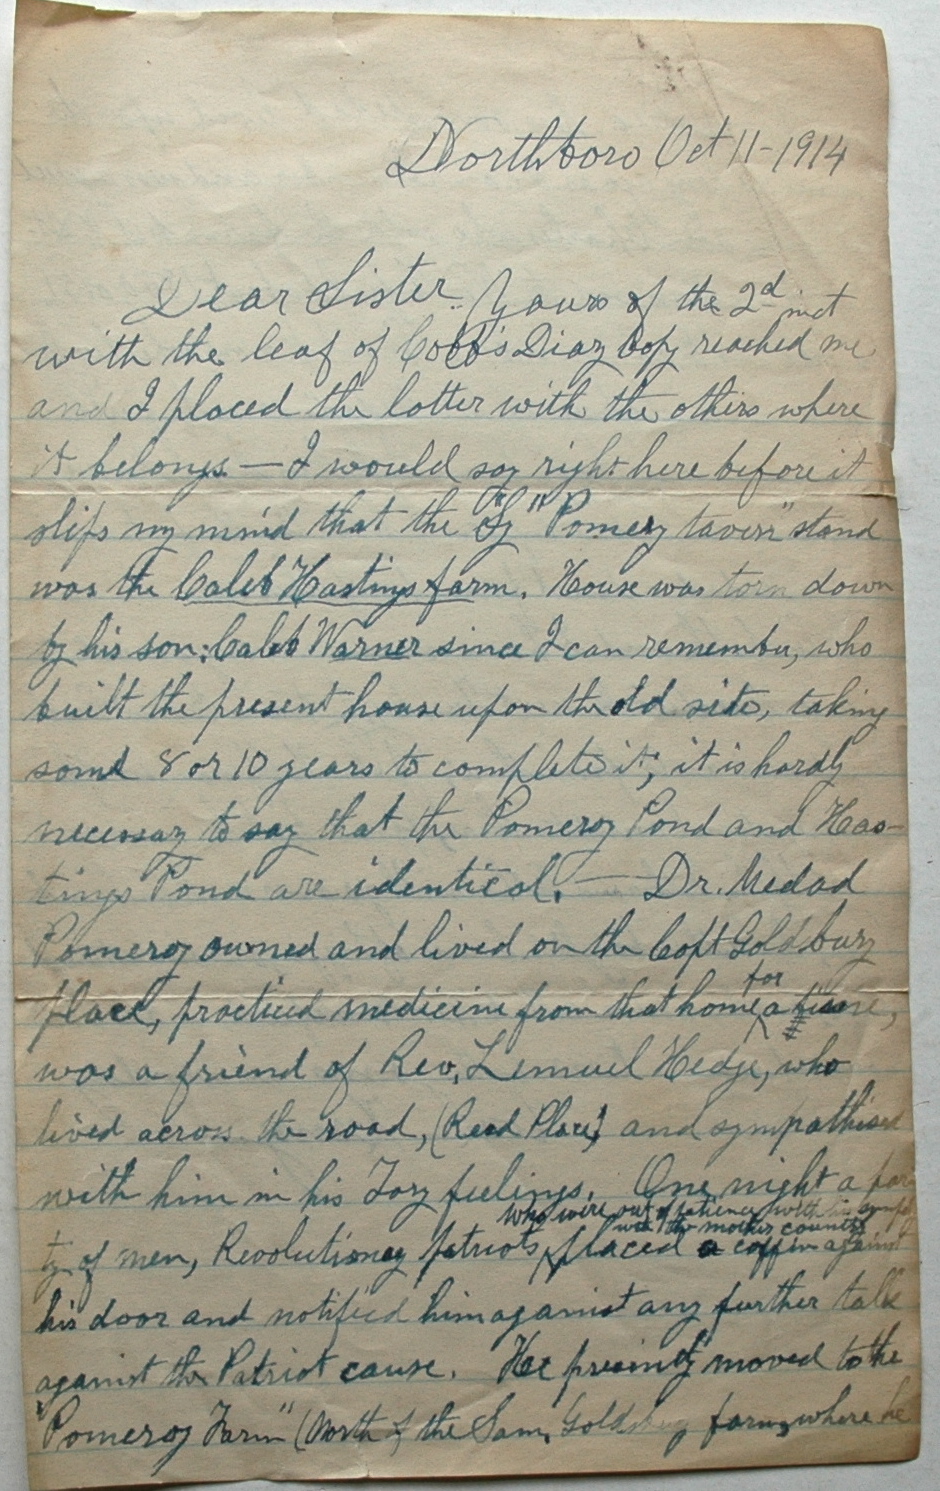 Northboro Oct 11-1914
Dear Sister. Yours of the 2d inst
with the leaf of Cobb's Diary Copy reached me
and I placed the latter with the others where
it belongs — I would say right here before it
slips my mind that the "Pomery tavern" stand
was the Caleb Hastings farm. House was torn down
by his son: Caleb Warner since I can remember, who
built the present house upon the old site, taking
some 8 or 10 years to complete it; it is hardly
necessary to say that the Pomeroy Pond and Has-
tings Pond are identical. — Dr. Medad
Pomeroy owned and lived on the Capt Goldsbury
place, practiced medicine from that home for a time,
was a friend of Rev. Lemuel Hedge, who
lived across the road, (Reed Place) and sympathised
with him in his Tory feelings. One night a par
who were out of patience with his sympathy
with the mother country
ty of men, Revolutionary patriots, placed a coffin against
his door and notified him against any further talk
against the Patriot cause. He presently moved to the
"Pomeroy Farm" (North of the Sam. Goldsbury farm, where he